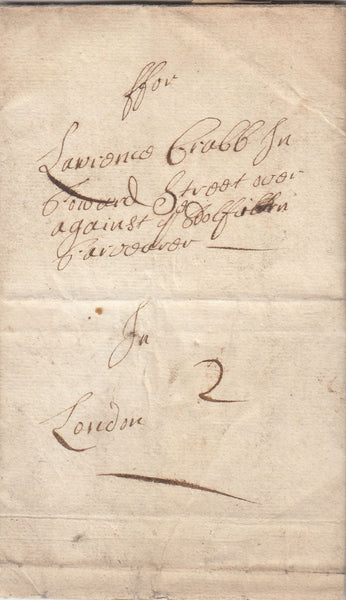 ffor
Lawrence Crabb In
Howard Street over
against ye Dolfin
In
2
London